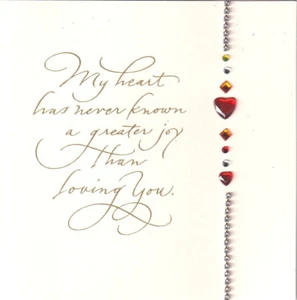 My heart
has never known
a greater joy
than
Loving You.